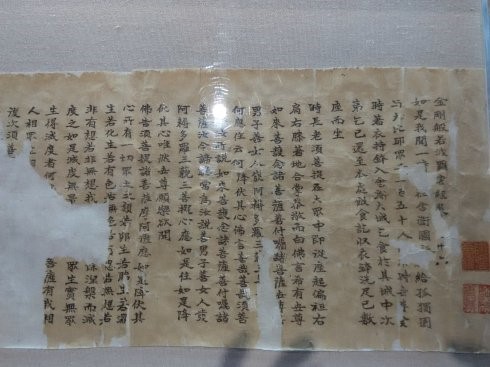 金剛般若波羅蜜經
如是我聞一時 在舍衛國 給孤獨園
比丘眾 百五十人
時著衣持鉢入舍衛大城乞食於其城中次
第乞已還至本處飯食訖收衣鉢洗足已敷
座而坐
時長老須菩提在大眾中即從座起偏袒右
肩右膝著地合掌恭敬而白佛言希有世尊
如來善護念諸菩薩善付囑諸菩薩世尊善
男子善女人發阿耨多羅三
何應住云何降伏其心佛言善哉善哉須菩
所說如來善護念諸菩薩善付囑諸
菩薩汝今諦聽當為汝說善男子善女人發
阿耨多羅三藐三菩提心應如是住如是降
伏其心唯然世尊願樂欲聞
佛告須菩提諸菩薩摩訶薩應如是降伏其
心所有一切眾生之類若卵生若胎生若濕
生若化生若有色若無色若有想若無想若
非有想若非無想我 餘涅槃而滅
度之如是滅度無 眾生實無眾
生得滅度者何 菩薩有我相
人相眾生相
復次須菩